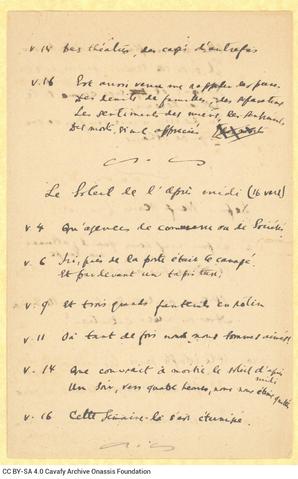 v. 14 Des théâtres, des cafés d'autrefois
v. 16 Est aussi venue me rappeler les
Des deuils de familles, des séparations
Les sentiments des miens, les sentiments
Des morts, si peu appréciés
Le Soleil de l'après midi (16 vers)
v. 4 Qu'agences de commerce ou de Sociétés
v. 6 Ici, près de la porte était le canapé.
Et par devant un tapis turc;
v. 9 et trois grands fauteuils en rotin
v. 11 Où tant de fois nous nous sommes aimés.
v. 14 Que couvrait à moitié le soleil d'après
midi
Un soir, vers quatre heures, nous nous étions quittés
v. 16 Cette semaine-là s'est éternisée.
CC BY-SA 4.0 Cavafy Archive Onassis Foundation